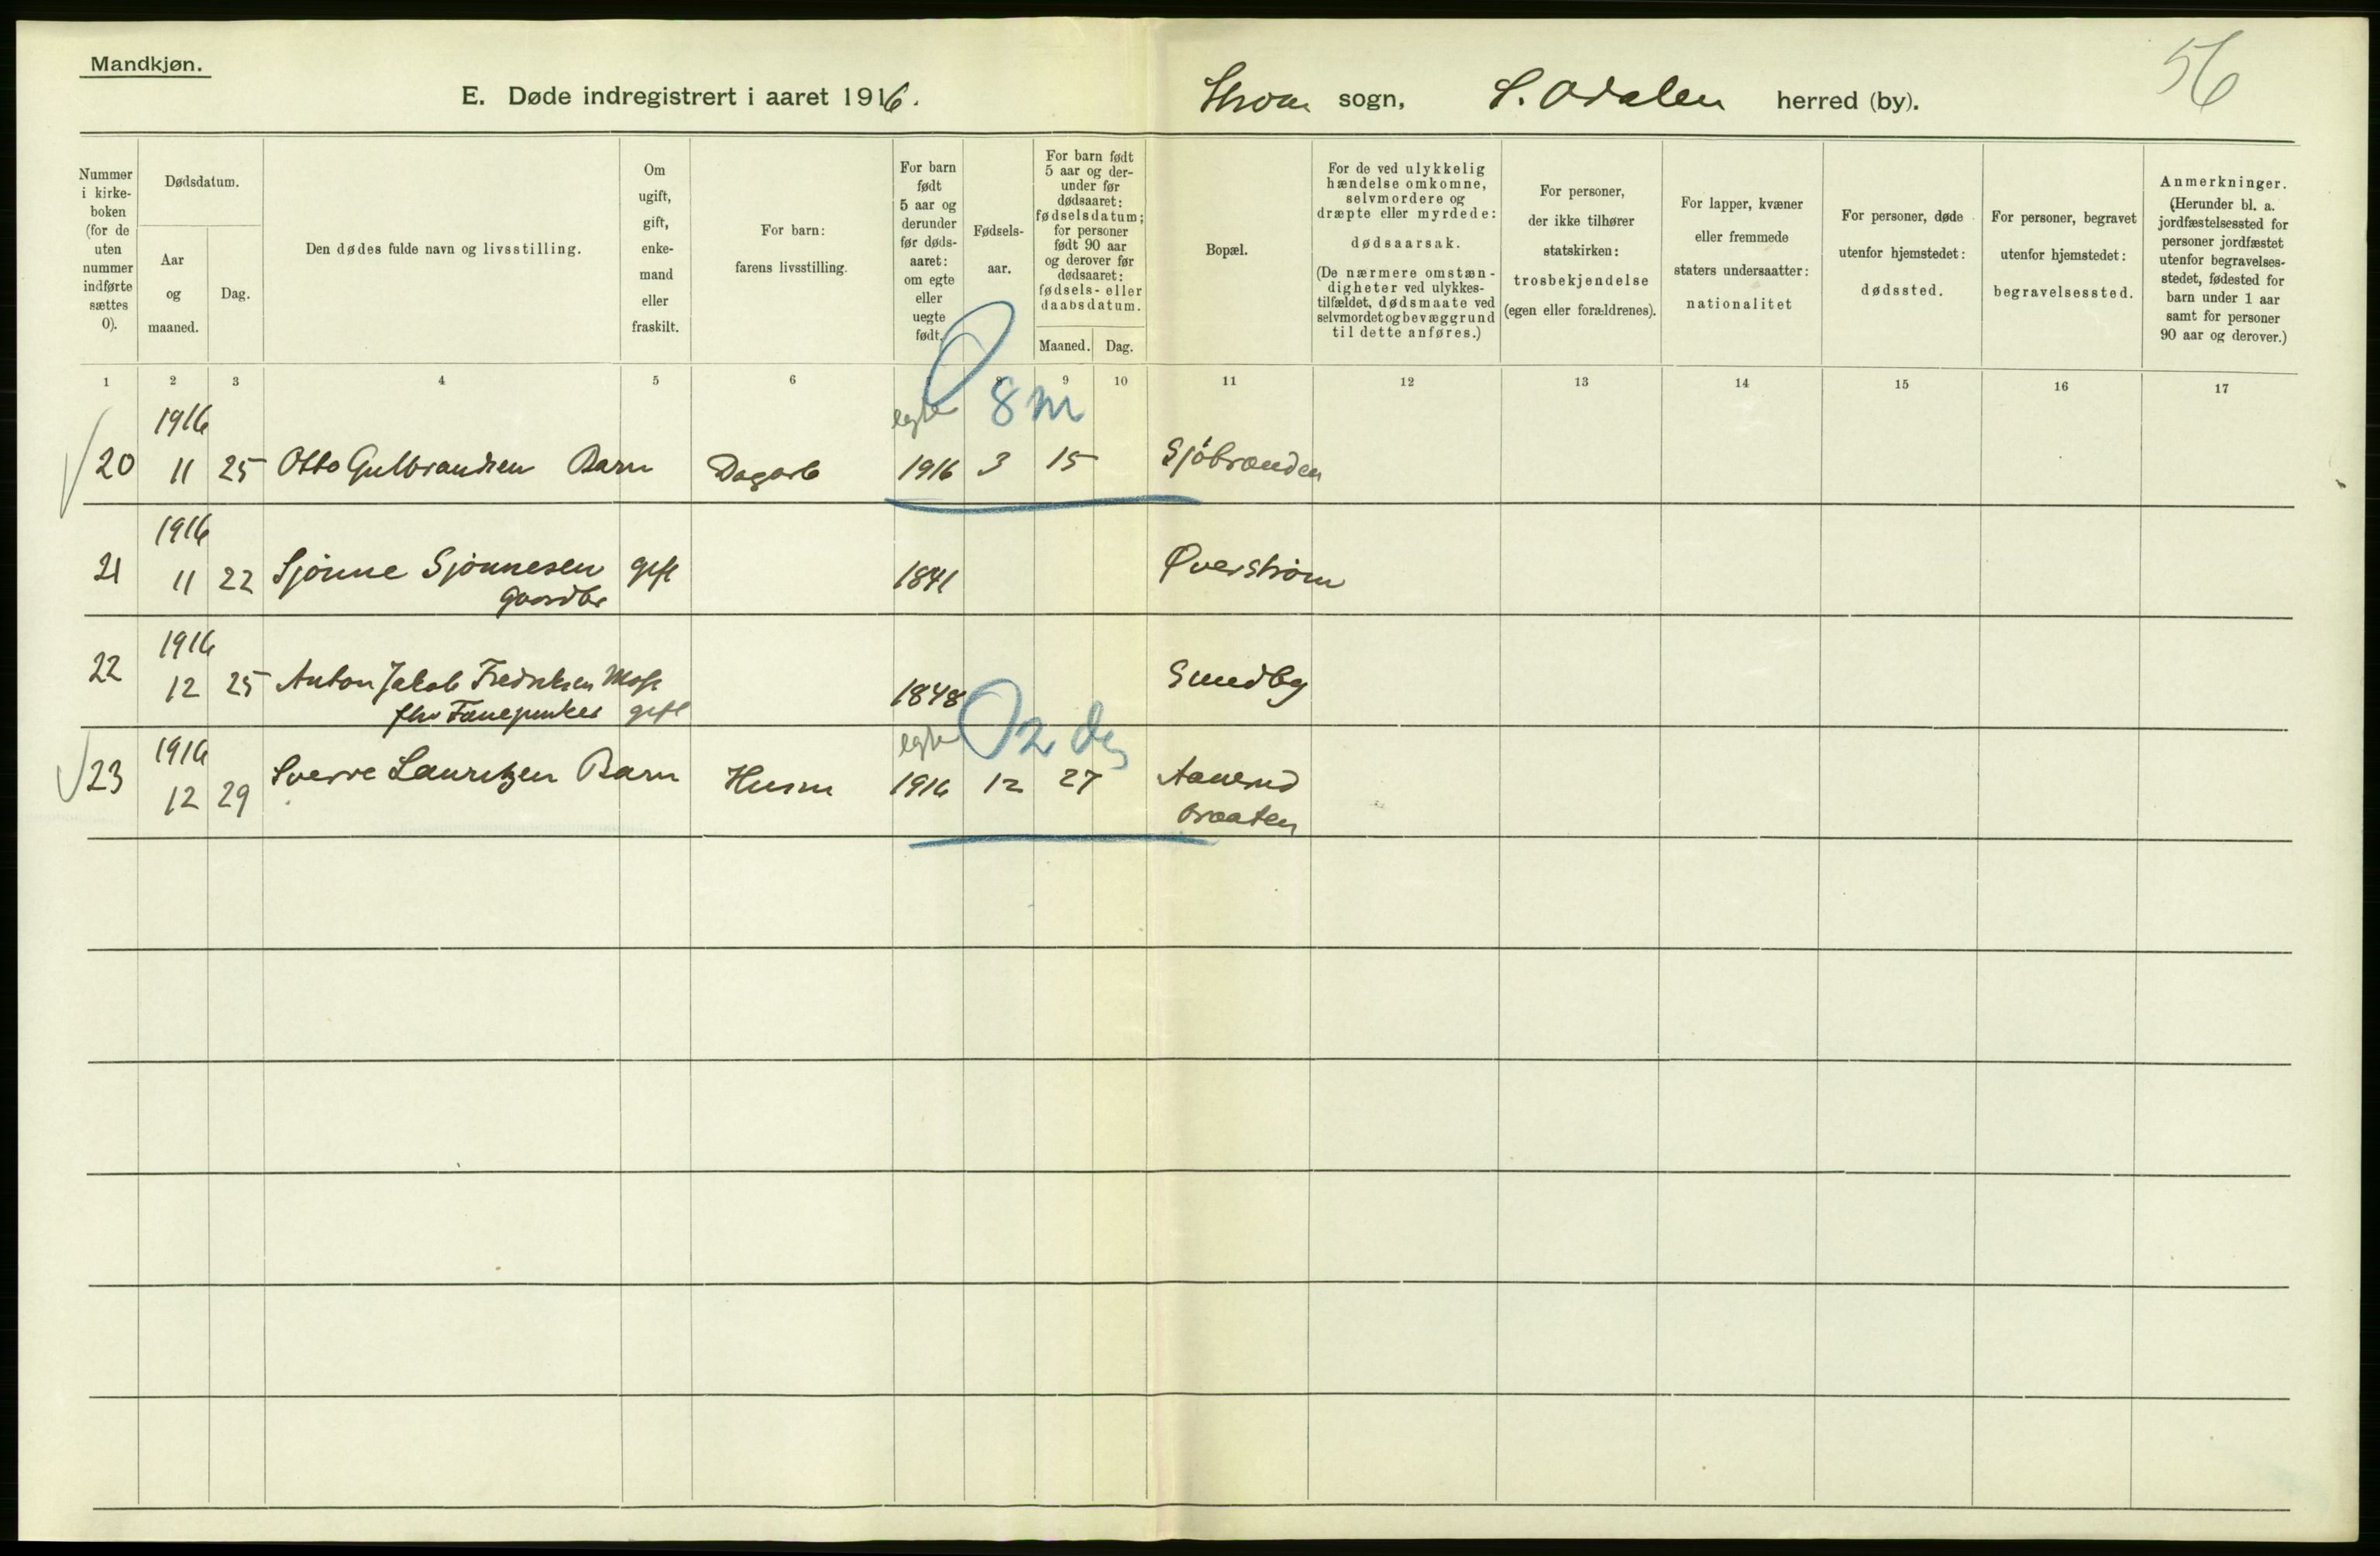 Mandkjøn.
56
E. Døde indregistrert i aaret 1916.
Strøm sogn, S. Odalen herred (by).
Nummer i kirke-boken (for de uten nummer indførte sættes 0).
Dødsdatum.
Aar og maaned.
Dag.
Den dødes fulde navn og livsstilling.
Om ugift, gift, enke-mand eller fraskilt.
For barn: farens livsstilling.
For barn født 5 aar og derunder før døds-aaret: om egte eller uegte født.
Fødsels-aar.
For barn født 5 aar og der-under før dødsaaret: fødselsdatum; for personer født 90 aar og derover før dødsaaret: fødsels- eller daabsdatum.
Maaned. Dag.
Bopæl.
For de ved ulykkelig hændelse omkomne, selvmordere og dræpte eller myrdede: dødsaarsak. (De nærmere omstæn-digheter ved ulykkes-tilfældet, dødsmaate ved selvmordet og bevæggrund til dette anføres.)
For personer, der ikke tilhører statskirken: trosbekjendelse (egen eller forældrenes).
For lapper, kvæner eller fremmede staters undersaatter: nationalitet
For personer, døde utenfor hjemstedet: dødssted.
For personer, begravet utenfor hjemstedet: begravelsessted.
Anmerkninger. (Herunder bl. a. jordfæstelsessted for personer jordfæstet utenfor begravelses-stedet, fødested for barn under 1 aar samt for personer 90 aar og derover.)
1 2 3 4 5 6 8 9 10 11 12 13 14 15 16 17
1916 egte 8 m
20 11 25 Otto Gulbrandsen Barn Dagarb 1916 3 15 Sjöbraenden
1916
21 11 22 Sjønne Sjønnesen gift 1841 Øverstrøm
Gaardbr
1916
22 12 25 Anton Jakob Fredriksen Moss 1848 Sundby
fhv gift
1916 egte 2 dg
23 12 29 Sverre Lauritzen Barn Husm 1916 12 27 Aanerud
braaten